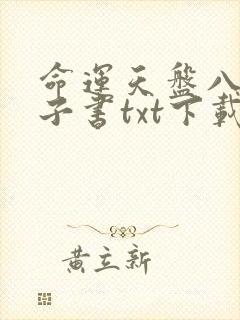 命運天盤八
子書txt下載
黄立新